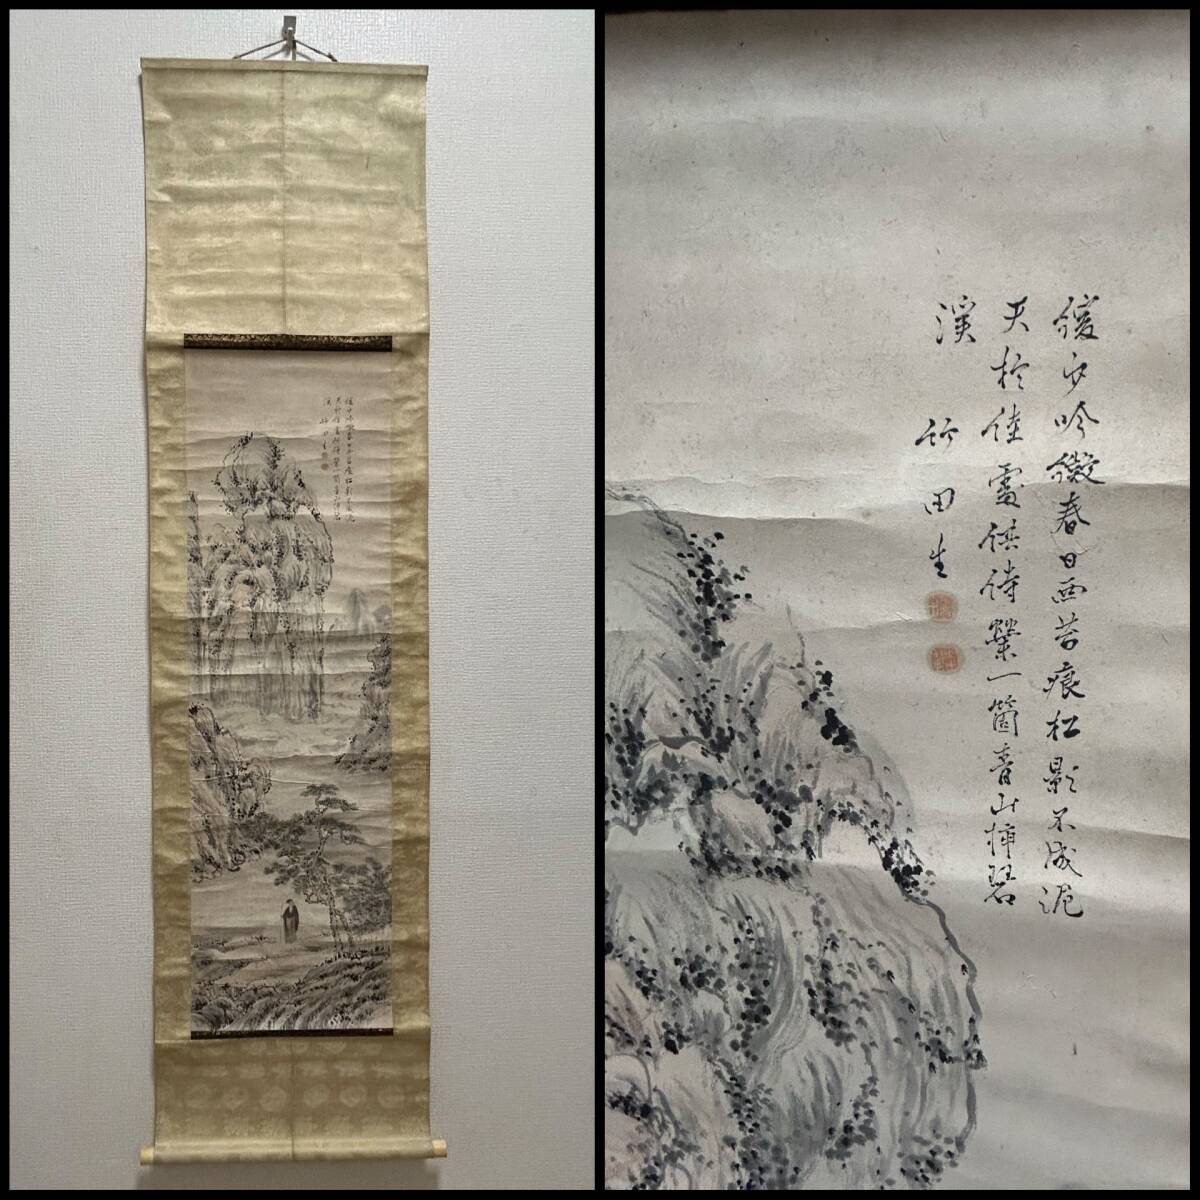 緩步吟微春日西苔痕松影不成泥
天於佳處供詩㮣一箇青山挿碧
溪
竹田生